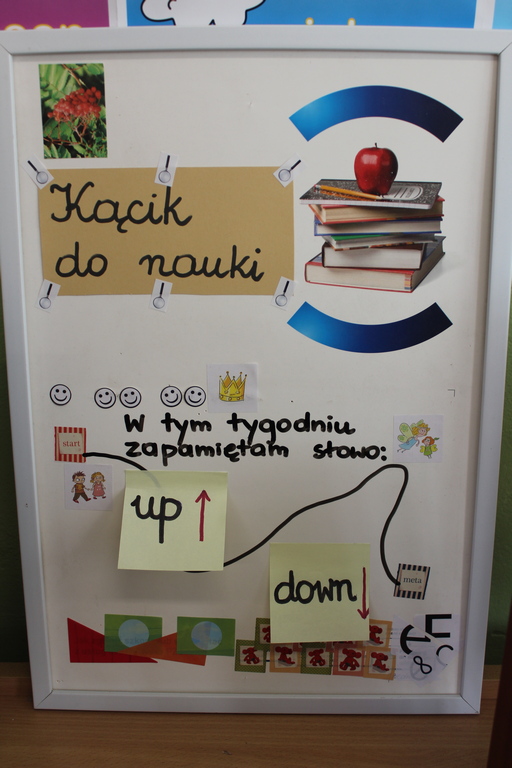 Kącik
do nauki
W tym tygodniu
start
zapamiętam słowo:
up
down
meta